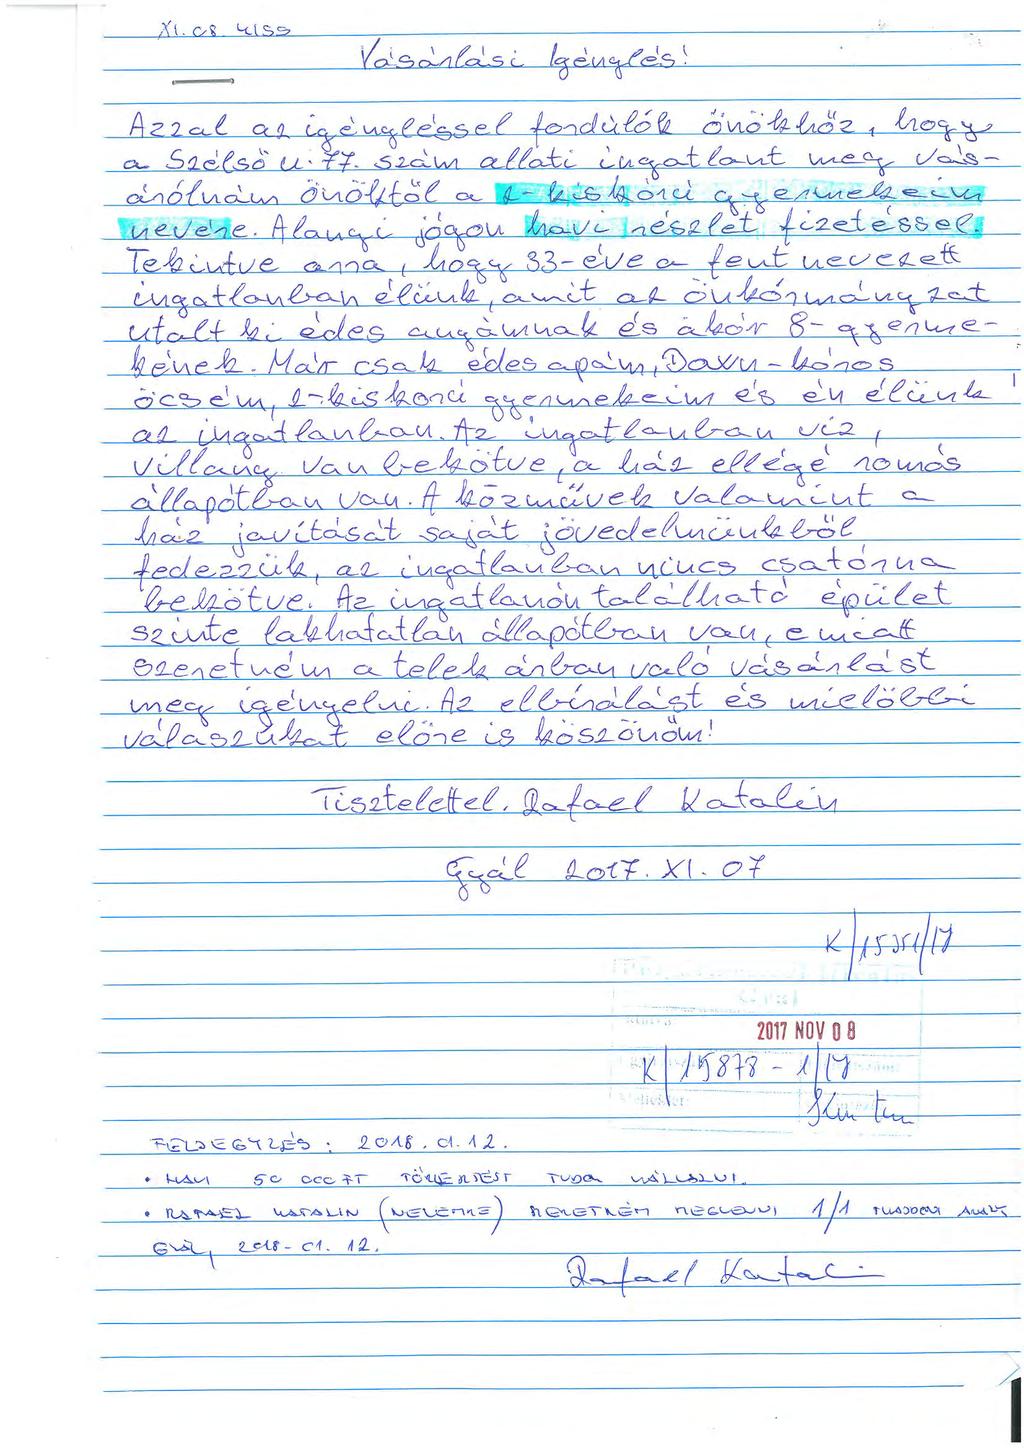 XI. 08. KISS
Vásárlási Igénylés!
Azzal az igényléssel fordúlók önökhöz, hogy
a Szélső u. 77. szám allati ingatlant meg vás-
árólnám önöktől a 2-kiskórú gyermekeim
nevére. Alangi jógon havi részlet fizetéssel.
Tekintve arra, hogy 33-éve a fent nevezett
ingatlanban élünk, amit az önkórmányzat
utalt ki édes angámnak és akór 8-gyerme-
kének. Már csak édes apám, Down-kóros
öcsém, 2-kiskorú gyermekeim és én élünk
az ingatlanban. Az ingatlanban víz,
villany van bekötve, a ház ellégé romós
állapótban van. A közművek valamint a
ház javítását saját jövedelmünkből
fedezzük, az ingatlanban nincs csatórna
bekötve. Az ingatlanón található épület
szinte lakhatatlan állapótban van, emiatt
szeretném a telek árban való vásárlást
meg igényelni. Az elbírálást és mielőbbi
válaszúkat előre is köszönöm!
Tisztelettel. Rafael Katalin
Gyál 2017. XI. 07
K/15351/17
2017 NOV 08
K/15878-1/17
FELJEGYZÉS: 2018. 01. 12.
• HAVI 50 000 FT TÖRLESZTÉST TUDOK VÁLLALNI.
• RAFAEL KATALIN (NEVEMRE) SZERETNÉM MEGVENNI 1/1
GYÁL, 2018-01. 12.
Rafael Katalin